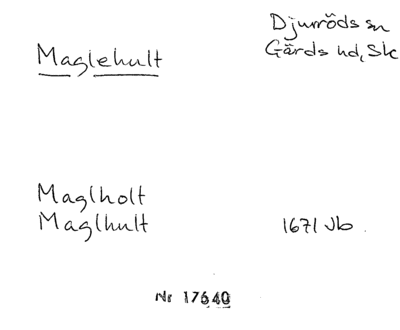 Djurröds sn
Maglehult
Gärds hd, Sk
Maglholt
Maglhult
1671 Jb
Nr 17640